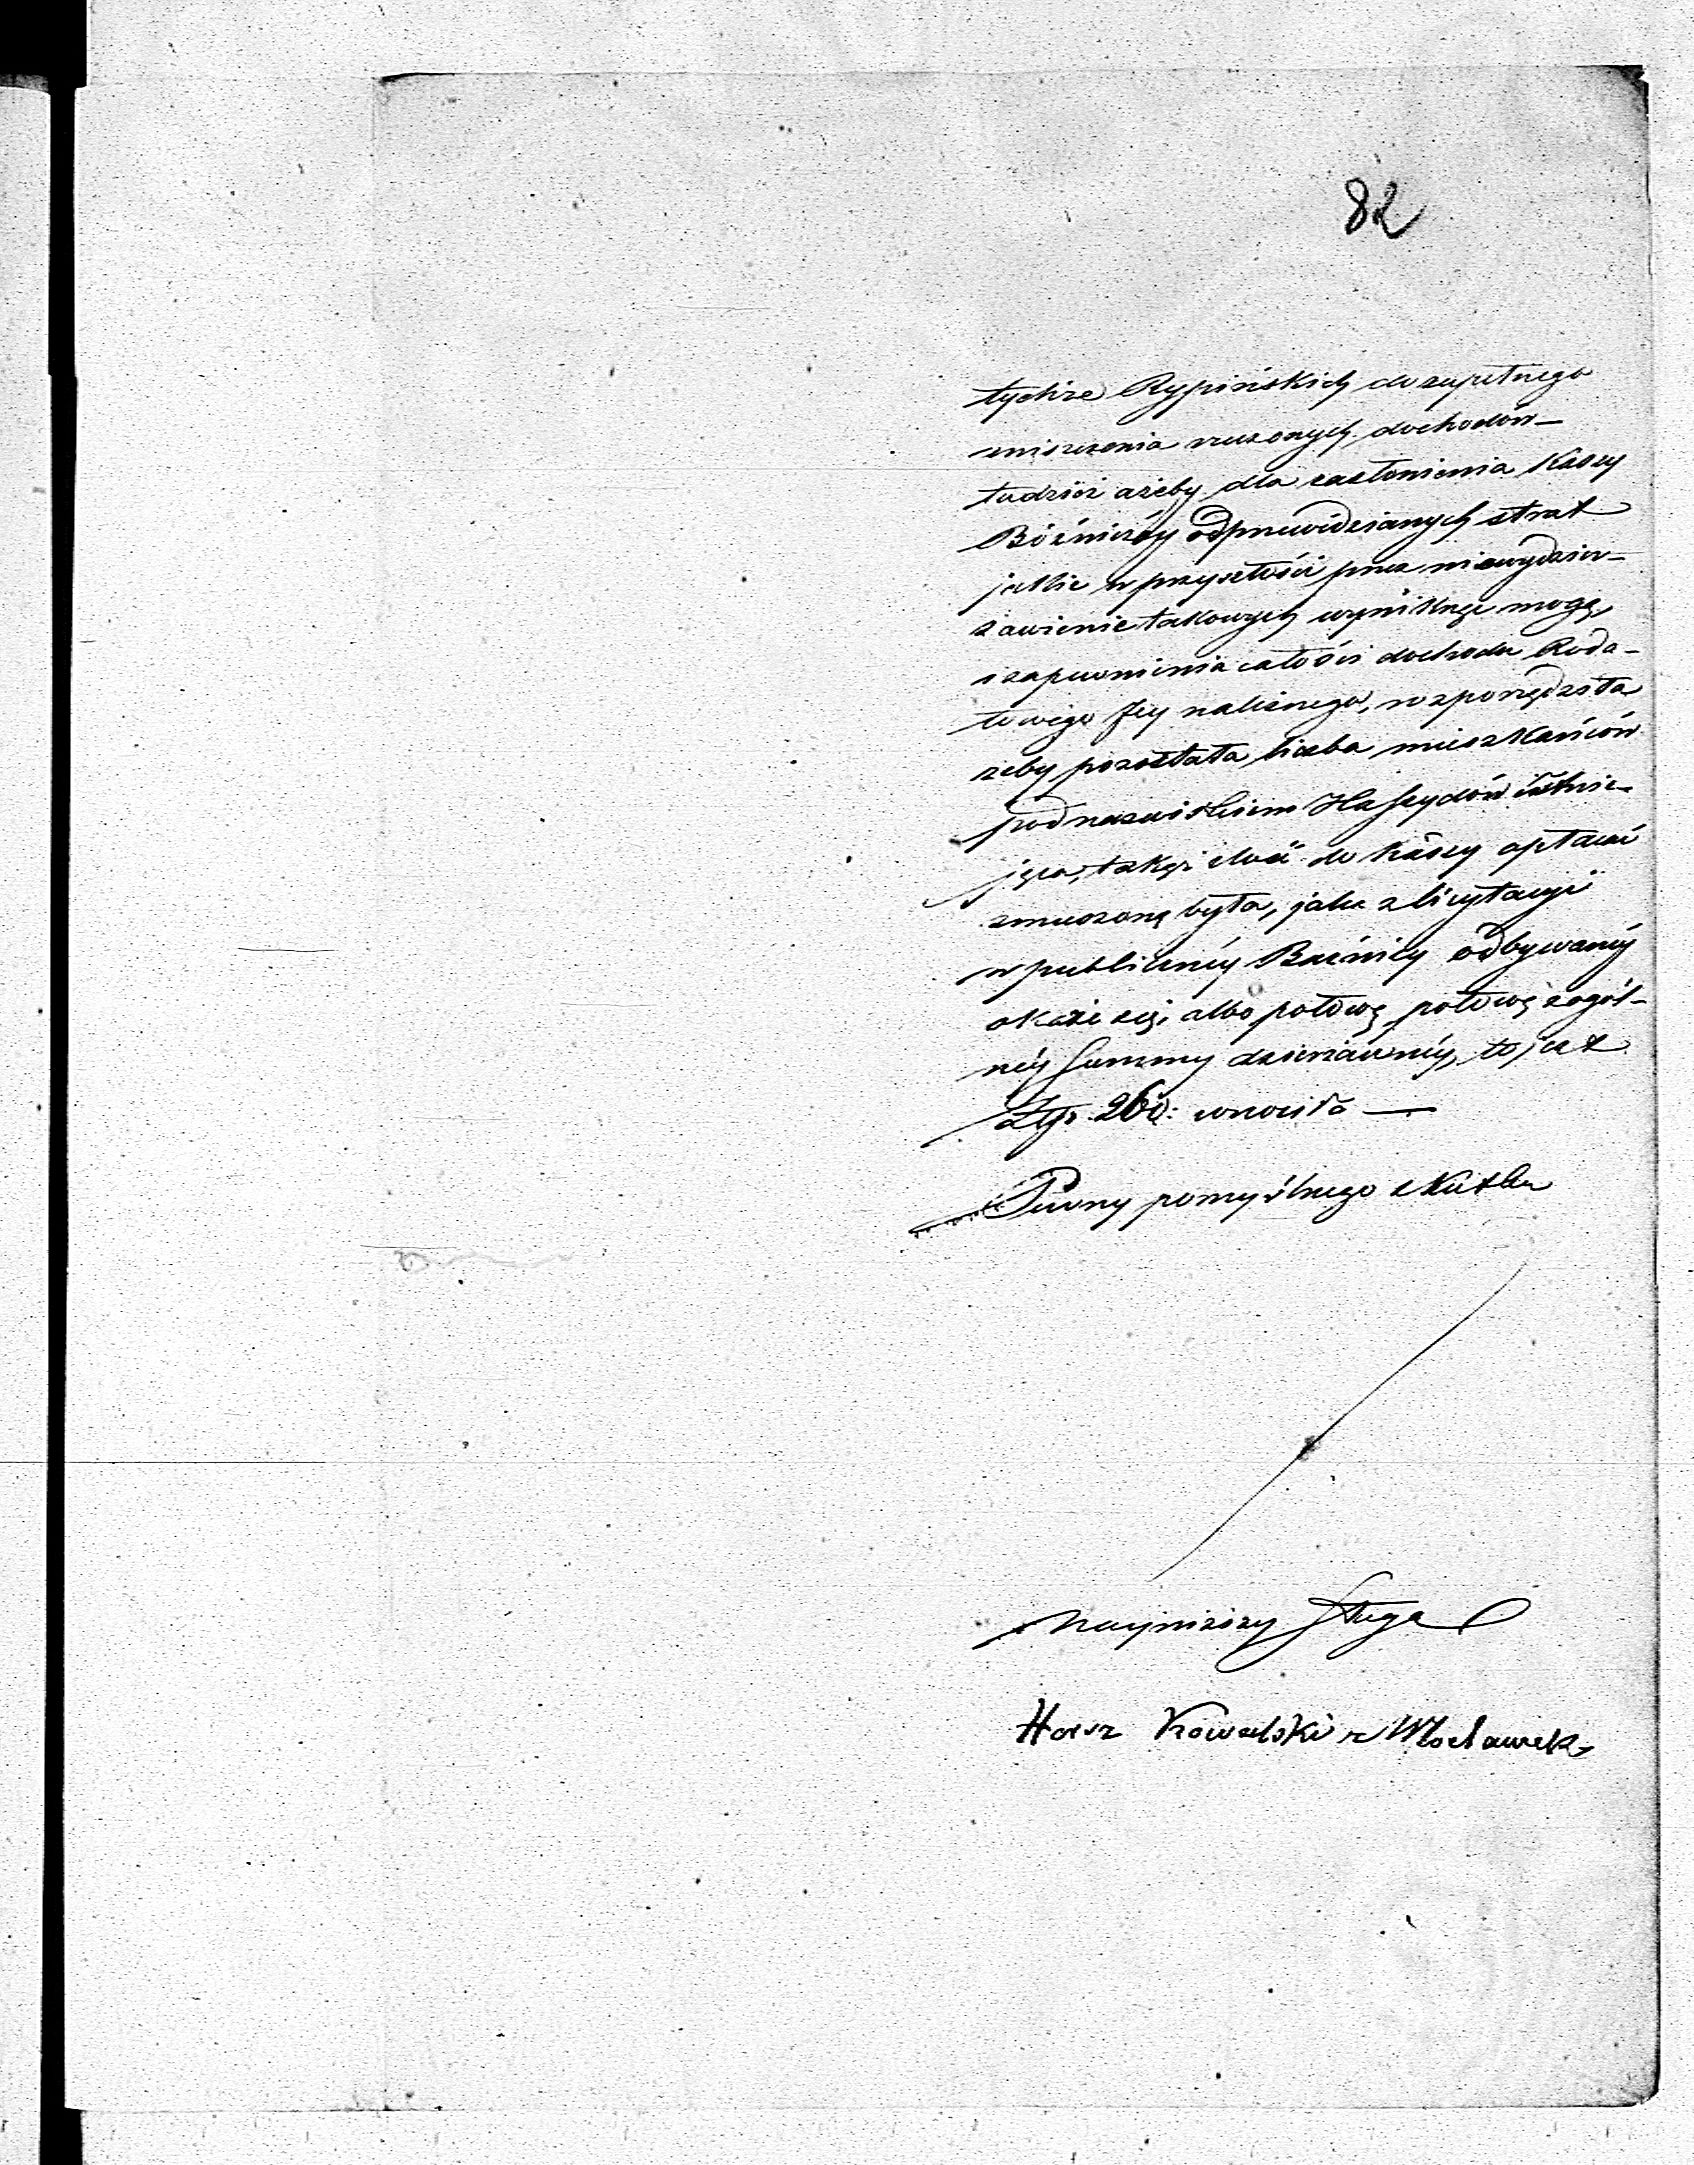 82
tychże Rypińskich do zupełnego
zniszczenia rzeczonych dochodów —
tudzież ażeby dla zasłonienia Kassy
Bóźniczéy od przewidzianych strat
jakie w przyszłości przez niewydzier-
żawienie takowych wyniknąć mogą,
i zapewnienia całości dochodu
należnego, rozporządziła
żeby pozostała liczba mieszkańców
pod nazwiskiem Hassydów istnie-
jąca, takąż ilość do Kassy opłacać
zmuszoną była, jaka z licytacyi
w publicznéy Bożnicy odbywanéy
okaże się, albo połowę połowę z ogól-
néy Summy dzierżawnéy, to jest
Złp. 260: wnosiła —
Pewny pomyślnego skutku
Nayniższy Sługa
Kowalski z Włocławek